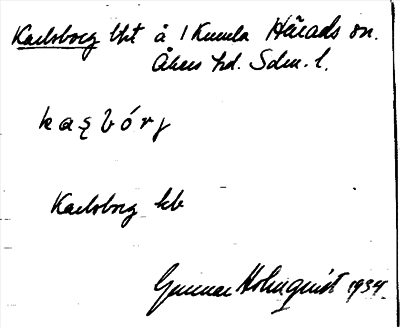 Karlsborg lht å 1 Kumla Härads sn.
Åkers hd. Sdm. l.
kaʂbórj
Karlsborg kb
Gunnar Holmquist 1934.